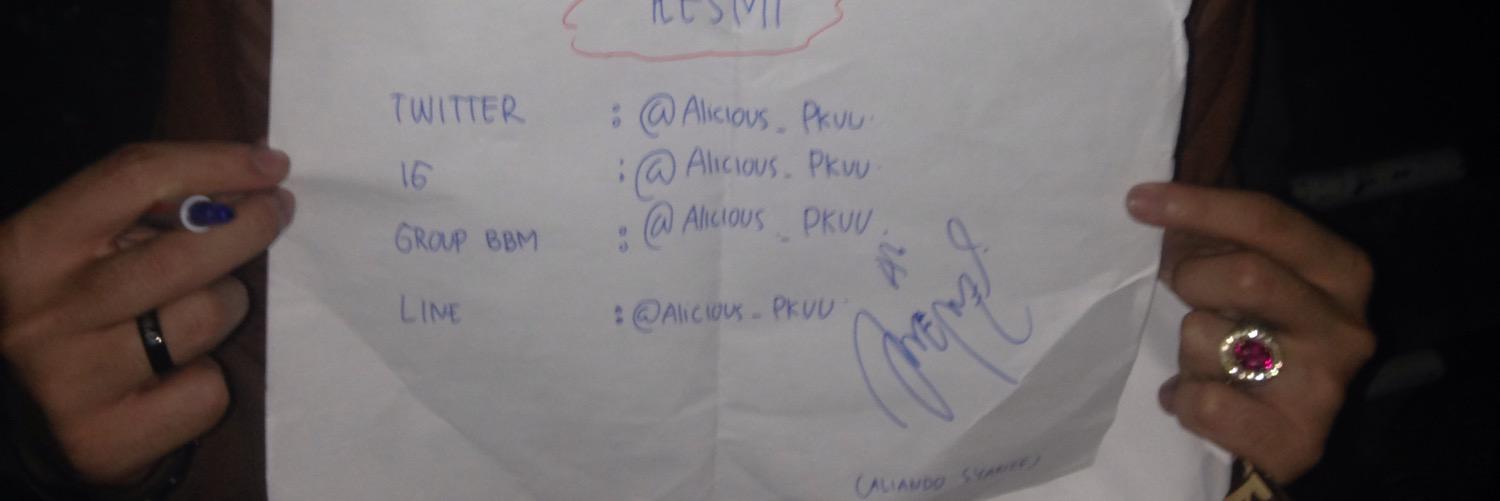 RESMI
TWITTER : @Alicious_PKUU
IG : @Alicious_PKUU
GROUP BBM : @Alicious_PKUU
LINE : @Alicious_PKUU
(ALIANDO SYARIEF)